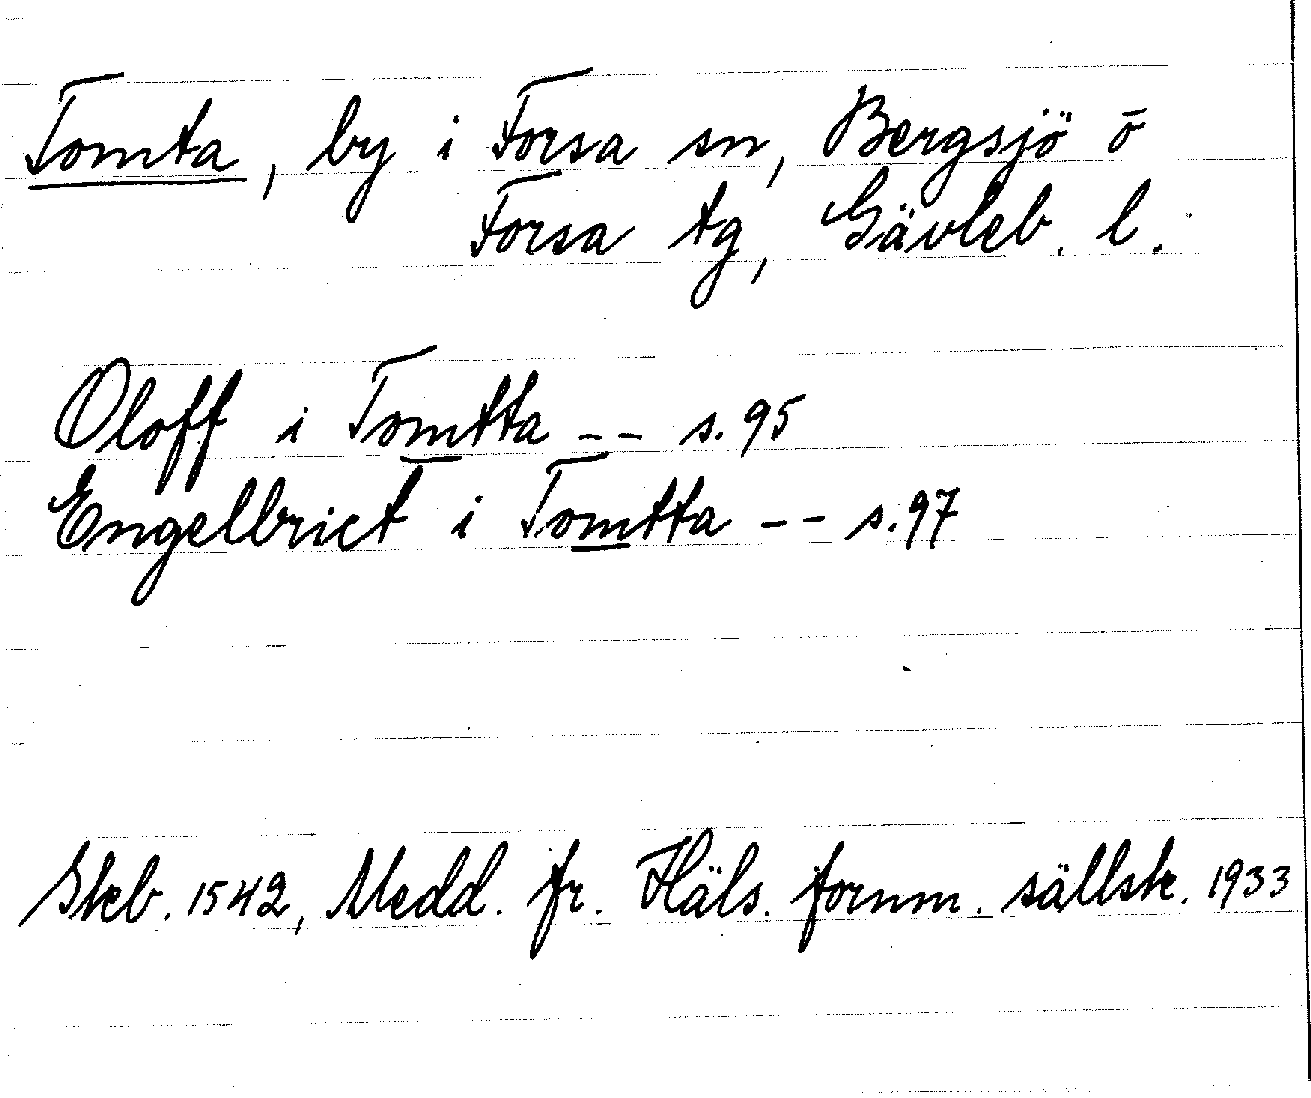 Tomta, by i Forsa sn, Bergsjö o
Forsa tg, Gävleb. l.
Oloff i Tomtta -- s. 95
Engelbrict i Tomtta -- s. 97
Skeb. 1542, Medd. fr. Häls. fornm. sällsk. 1933